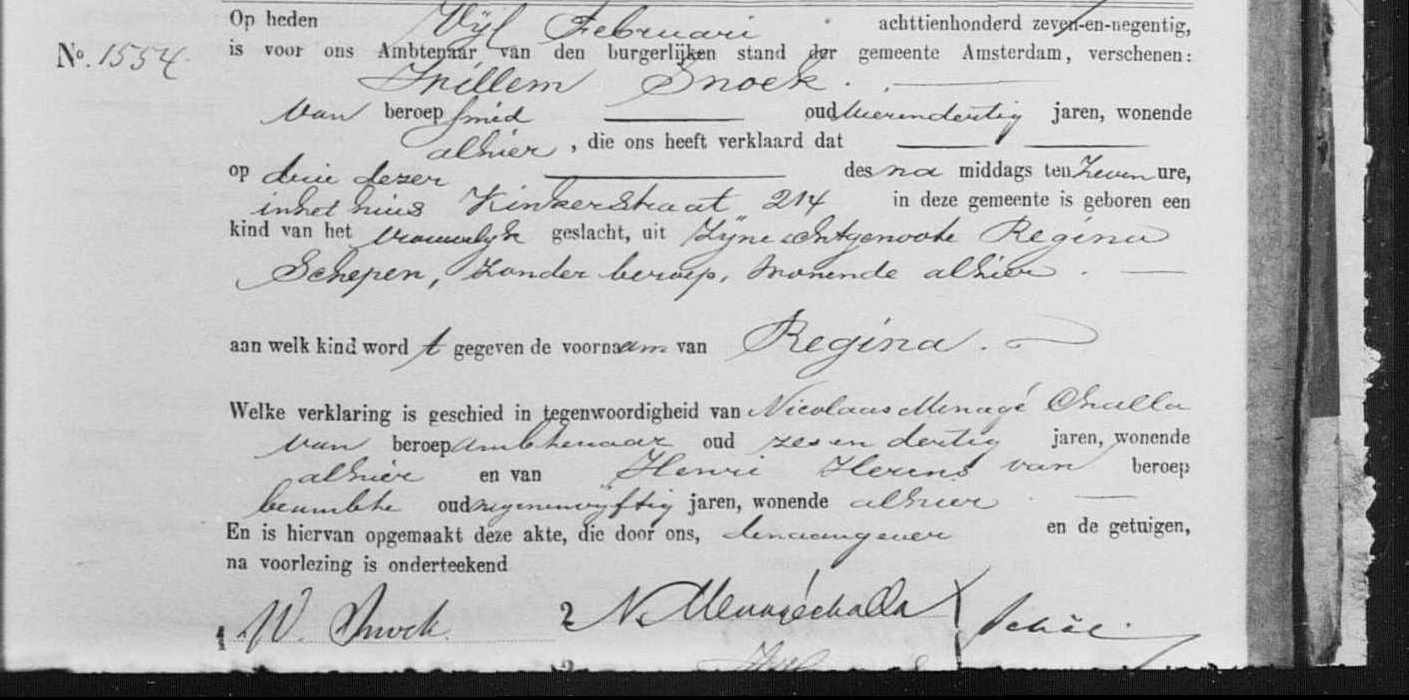 Op heden Vijf Februari achttienhonderd zeven-en-negentig,
No. 1554. is voor ons Ambtenaar van den burgerlijken stand der gemeente Amsterdam, verschenen:
Willem Snoek.
van beroep smid oud vierendertig jaren, wonende
alhier, die ons heeft verklaard dat
op drie dezer des na middags ten zeven ure,
in het huis Kinkerstraat 214 in deze gemeente is geboren een
kind van het vrouwelijk geslacht, uit zijne echtgenoote Regina
Schepen, zonder beroep, wonende alhier.
aan welk kind word t gegeven de voornaam van Regina.
Welke verklaring is geschied in tegenwoordigheid van Nicolaas Menagé Challa
van beroep ambtenaar oud zesendertig jaren, wonende
alhier en van Henri Herens van beroep
beambte oud negenenvijftig jaren, wonende alhier
En is hiervan opgemaakt deze akte, die door ons, den aangever en de getuigen,
na voorlezing is onderteekend
1 W. Snoek. 2 N. Menagéchalla